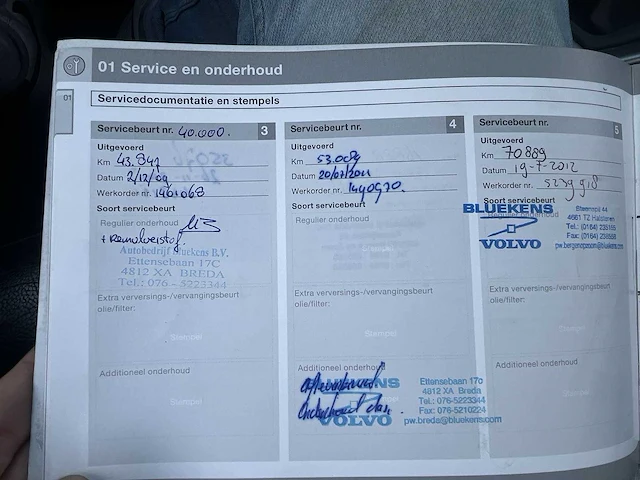 01 Service en onderhoud
01
Servicedocumentatie en stempels
Servicebeurt nr. 40.000. 3
Uitgevoerd
Km 43.841
Datum 2/12/09
Werkorder nr. 1461063
Soort servicebeurt
Regulier onderhoud
+ remvloeistof.
Autobedrijf Bluekens B.V.
Ettensebaan 17C
4812 XA BREDA
Tel.: 076 - 5223344
Extra verversings-/vervangingsbeurt
olie/filter:
Stempel
Additioneel onderhoud
Stempel
Servicebeurt nr. 4
Uitgevoerd
Km 53.009
Datum 20/01/2011
Werkorder nr. 1490970.
Soort servicebeurt
Regulier onderhoud
Extra verversings-/vervangingsbeurt
olie/filter:
Stempel
Additioneel onderhoud
BLUEKENS
VOLVO
Ettensebaan 17c
4812 XA Breda
Tel.: 076-5223344
Fax: 076-5210224
pw.breda@bluekens.com
Servicebeurt nr. 5
Uitgevoerd
Km 70889
Datum 19-7-2012
Werkorder nr. 5239918
Soort servicebeurt
BLUEKENS
VOLVO
4661 TZ Halsteren
Regulier onderhoud
Extra verversings-/vervangingsbeurt
olie/filter:
Stempel
Additioneel onderhoud
Stempel